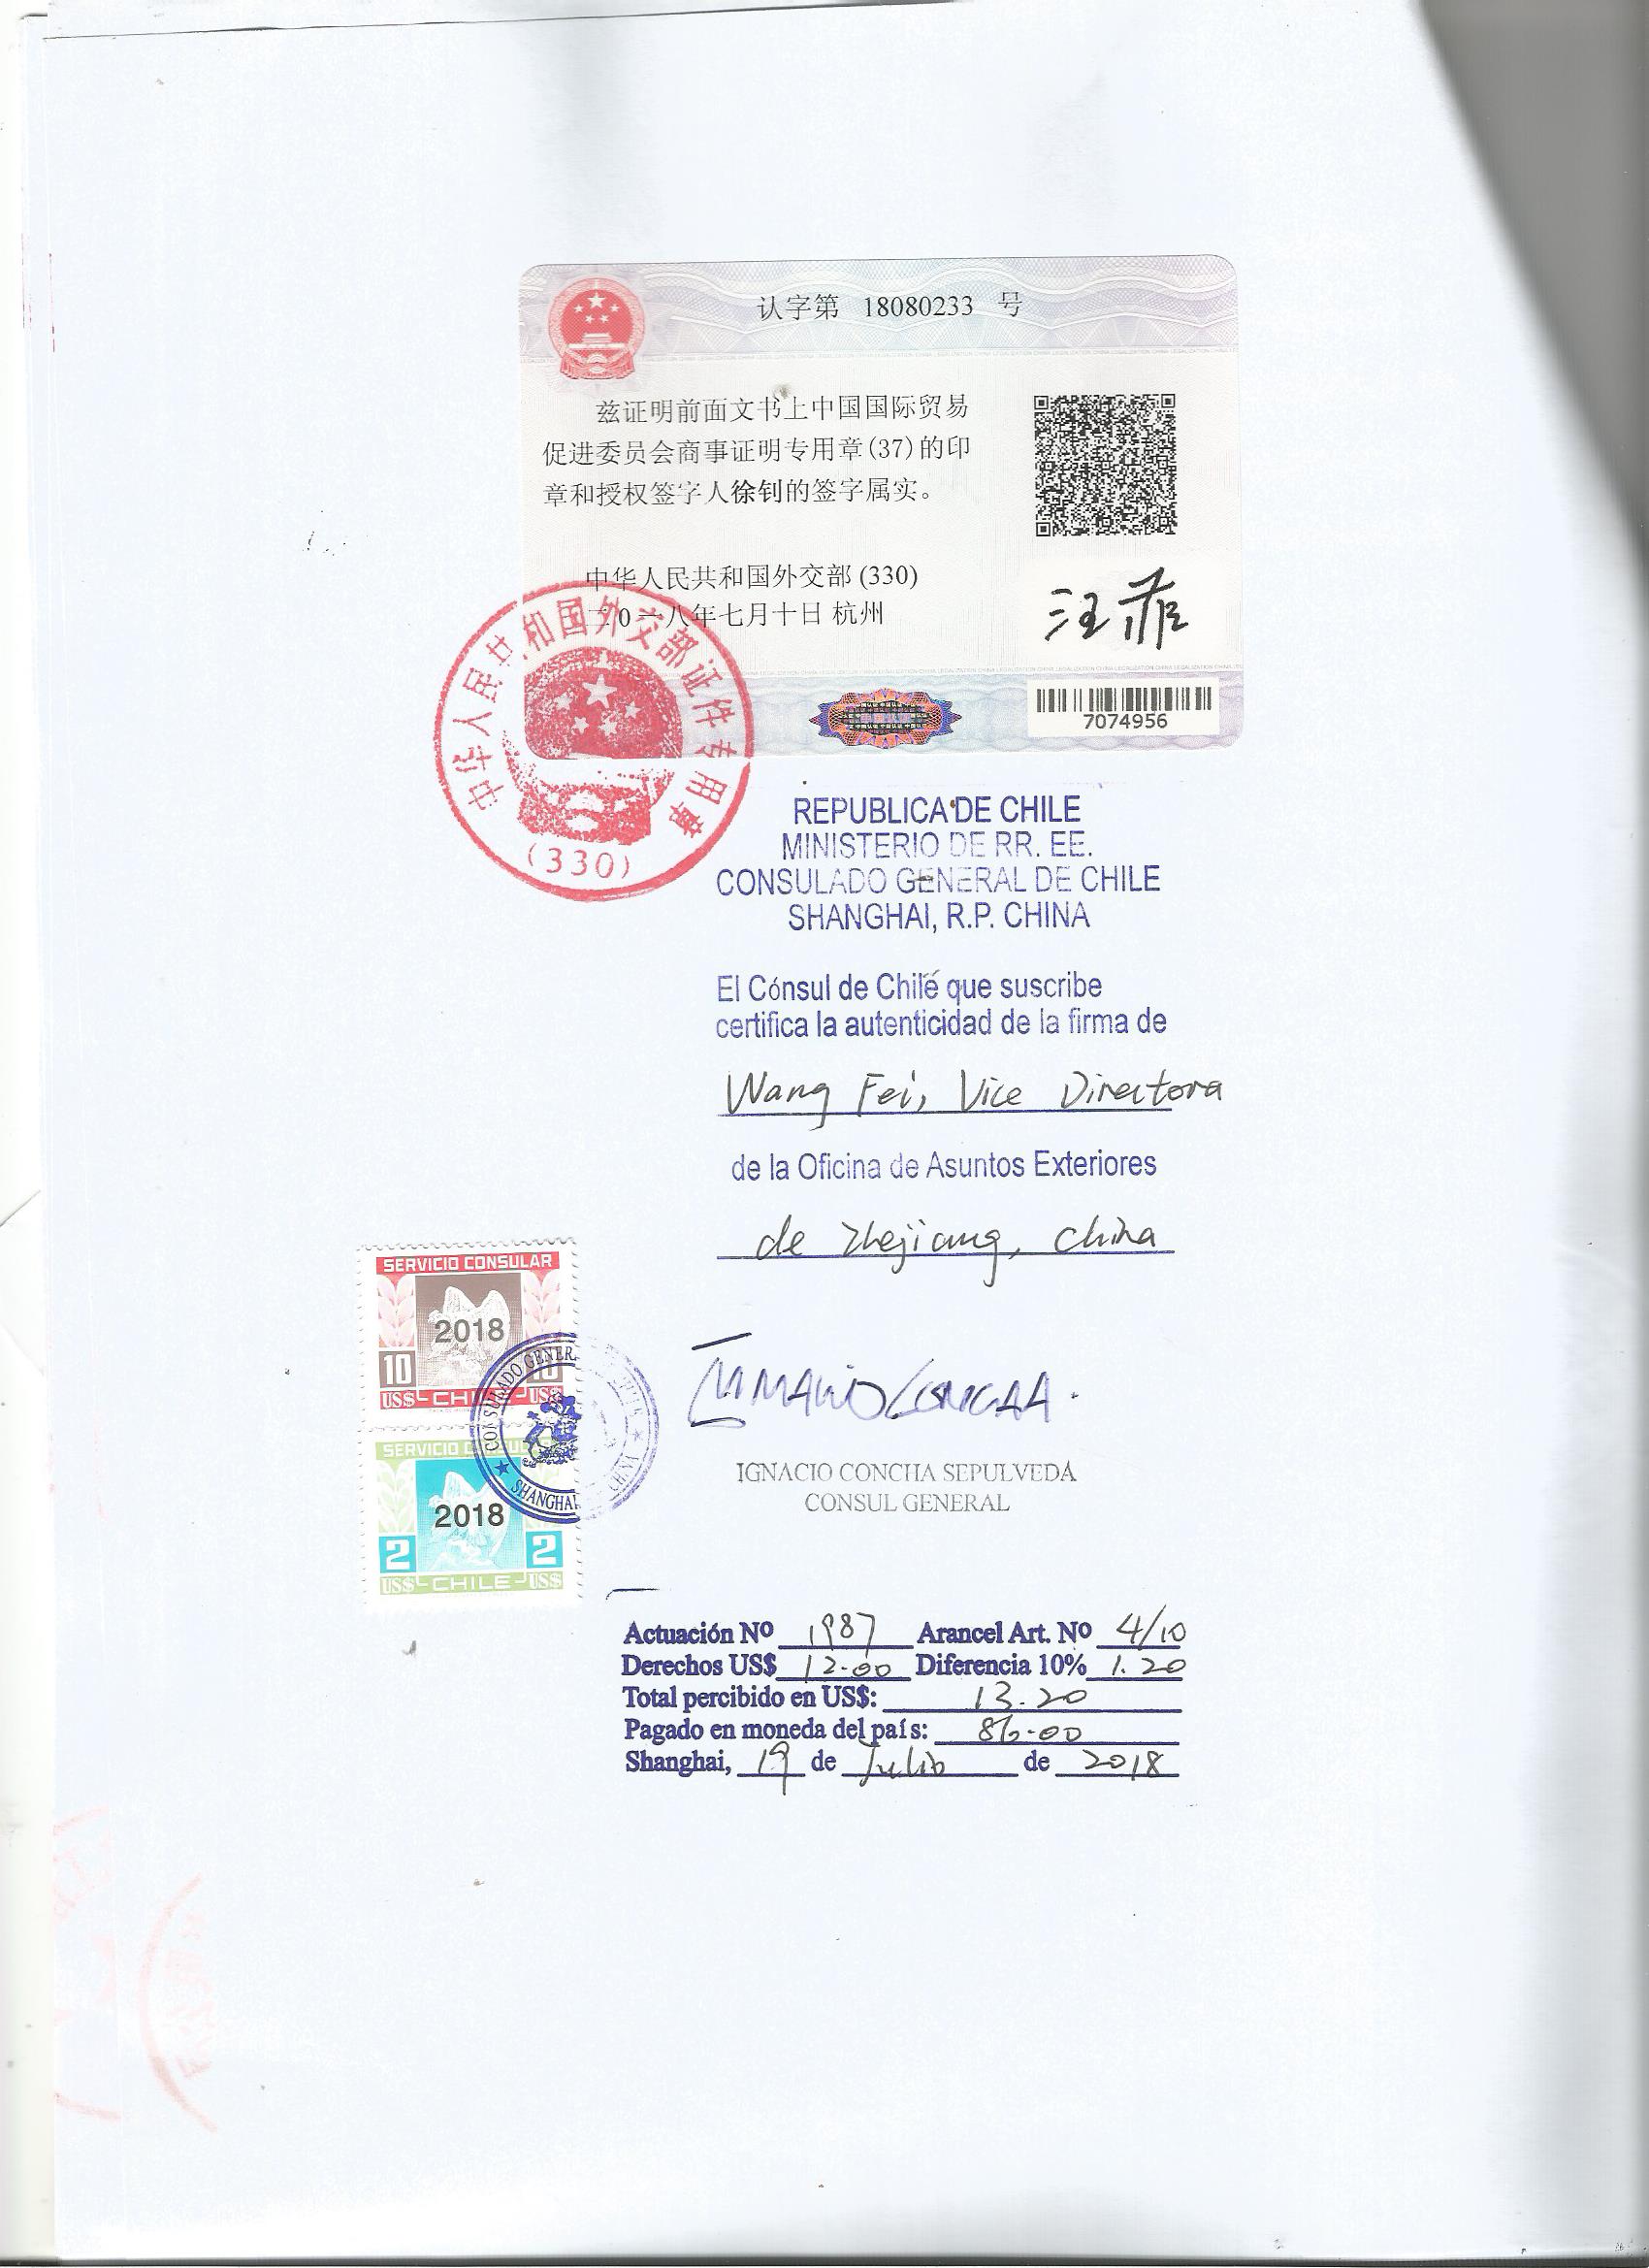 认字第 18080233 号
兹证明前面文书上中国国际贸易
促进委员会商事证明专用章(37)的印
章和授权签字人徐钊的签字属实。
中华人民共和国外交部(330)
二0一八年七月十日 杭州
汪菲
7074956
中华人民共和国外交部证件专用章
(330)
REPUBLICA DE CHILE
MINISTERIO DE RR. EE.
CONSULADO GENERAL DE CHILE
SHANGHAI, R.P. CHINA
El Cónsul de Chile que suscribe
certifica la autenticidad de la firma de
Wang Fei, Vice Directora
de la Oficina de Asuntos Exteriores
de Zhejiang, China
SERVICIO CONSULAR
2018
10
US$ CHILE US$
CONSULADO GENER
SHANGHAI
SERVICIO
2018
2 2
US$ CHILE US$
IGNACIO CONCHA SEPULVEDA
CONSUL GENERAL
Actuación Nº 1987 Arancel Art. Nº 4/10
Derechos US$ 12.00 Diferencia 10% 1.20
Total percibido en US$: 13.20
Pagado en moneda del país: 86.00
Shanghai, 19 de Julio de 2018